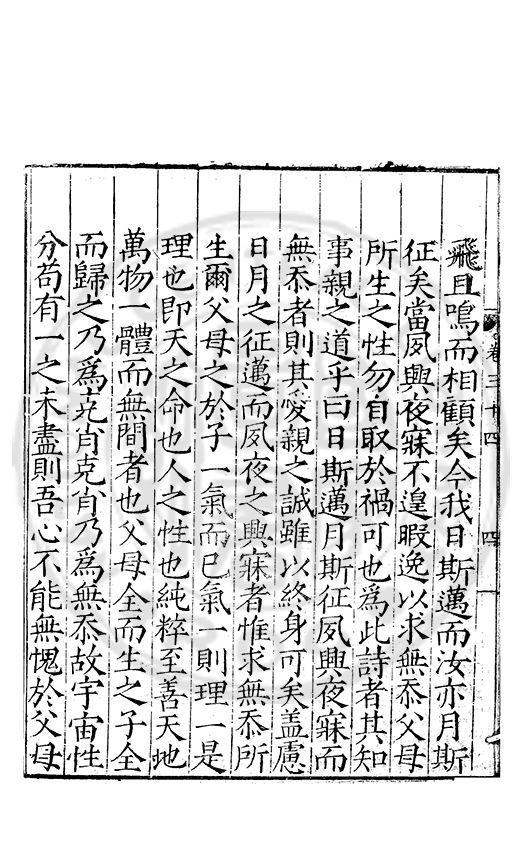 飛且鳴而相顧矣今我日斯邁而汝亦月斯
征矣當夙興夜寐不遑暇逸以求無忝父母
所生之性勿自取於禍可也為此詩者其知
事親之道乎曰日斯邁月斯征夙興夜寐而
無忝者則其愛親之誠雖以終身可矣盖慮
日月之征邁而夙夜之興寐者惟求無忝所
生爾父母之於子一氣而已氣一則理一是
理也即天之命也人之性也純粹至善天地
萬物一體而無間者也父母全而生之子全
而歸之乃為克肖克肖乃為無忝故宇宙性
分苟有一之未盡則吾心不能無愧於父母
卷三十四
四